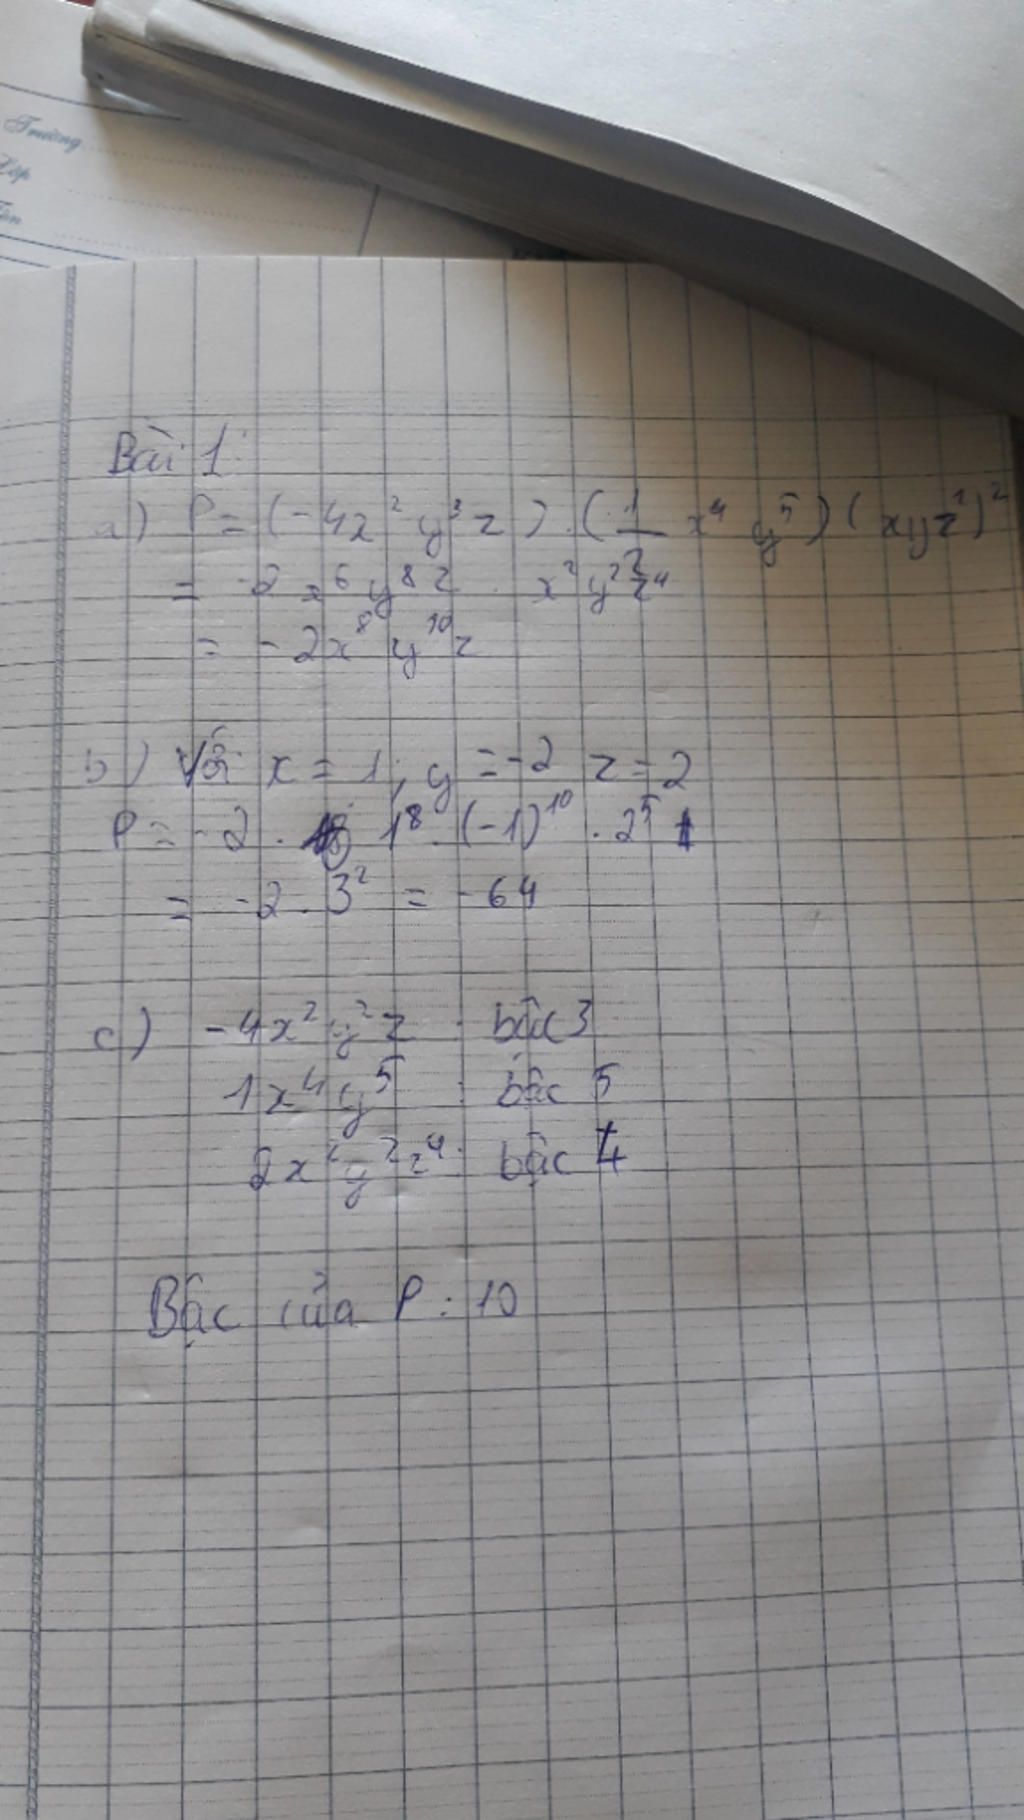 Trường
Lớp
Tên
Bài 1:
a) P = (-4x² y³ z) . (1 x⁴ y⁵) (xyz²)²
= -2 x⁶ y⁸ z . x² y² z⁴
= -2x⁸ y¹⁰ z
b) Với x = 1, y = -2 z = 2
P = -2 . 1⁸ (-1)¹⁰ . 2⁵
= -2 . 3² = -64
c) -4x² y² z : bậc 3
1x⁴ y⁵ : bậc 5
2x² y² z⁴ : bậc 4
Bậc của P : 10